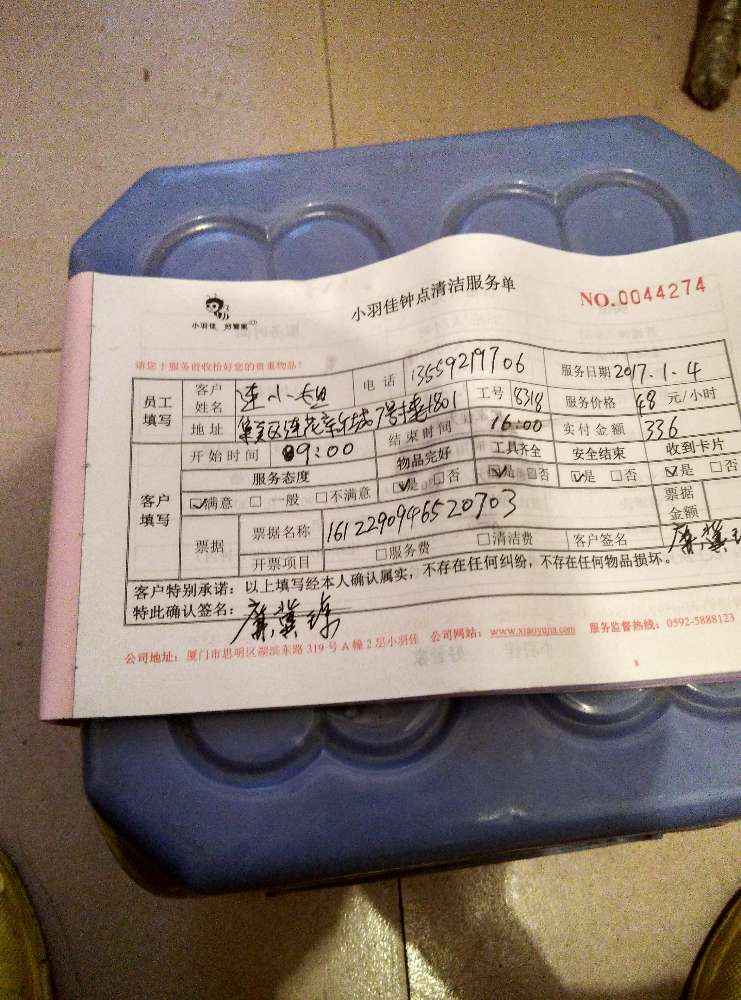 小羽佳 好管家
小羽佳钟点清洁服务单
NO.0044274
请您于服务前收捡好您的贵重物品!
员工填写 客户姓名 连小姐 电话 13559219706 服务日期 2017.1.4
地址 7号楼1801 工号 8318 服务价格 48 元/小时
开始时间 09:00 结束时间 16:00 实付金额 336
客户填写 服务态度 物品完好 工具齐全 安全结束 收到卡片
☑满意 □一般 □不满意 ☑是 □否 ☑是 □否 ☑是 □否 ☑是 □否
票据 票据名称 1612290946520703 票据金额
开票项目 □服务费 □清洁费 客户签名
客户特别承诺:以上填写经本人确认属实,不存在任何纠纷,不存在任何物品损坏。
特此确认签名:
公司地址:厦门市思明区湖滨东路319号A幢2层小羽佳 公司网站:www.xiaoyujia.com 服务监督热线:0592-5888123